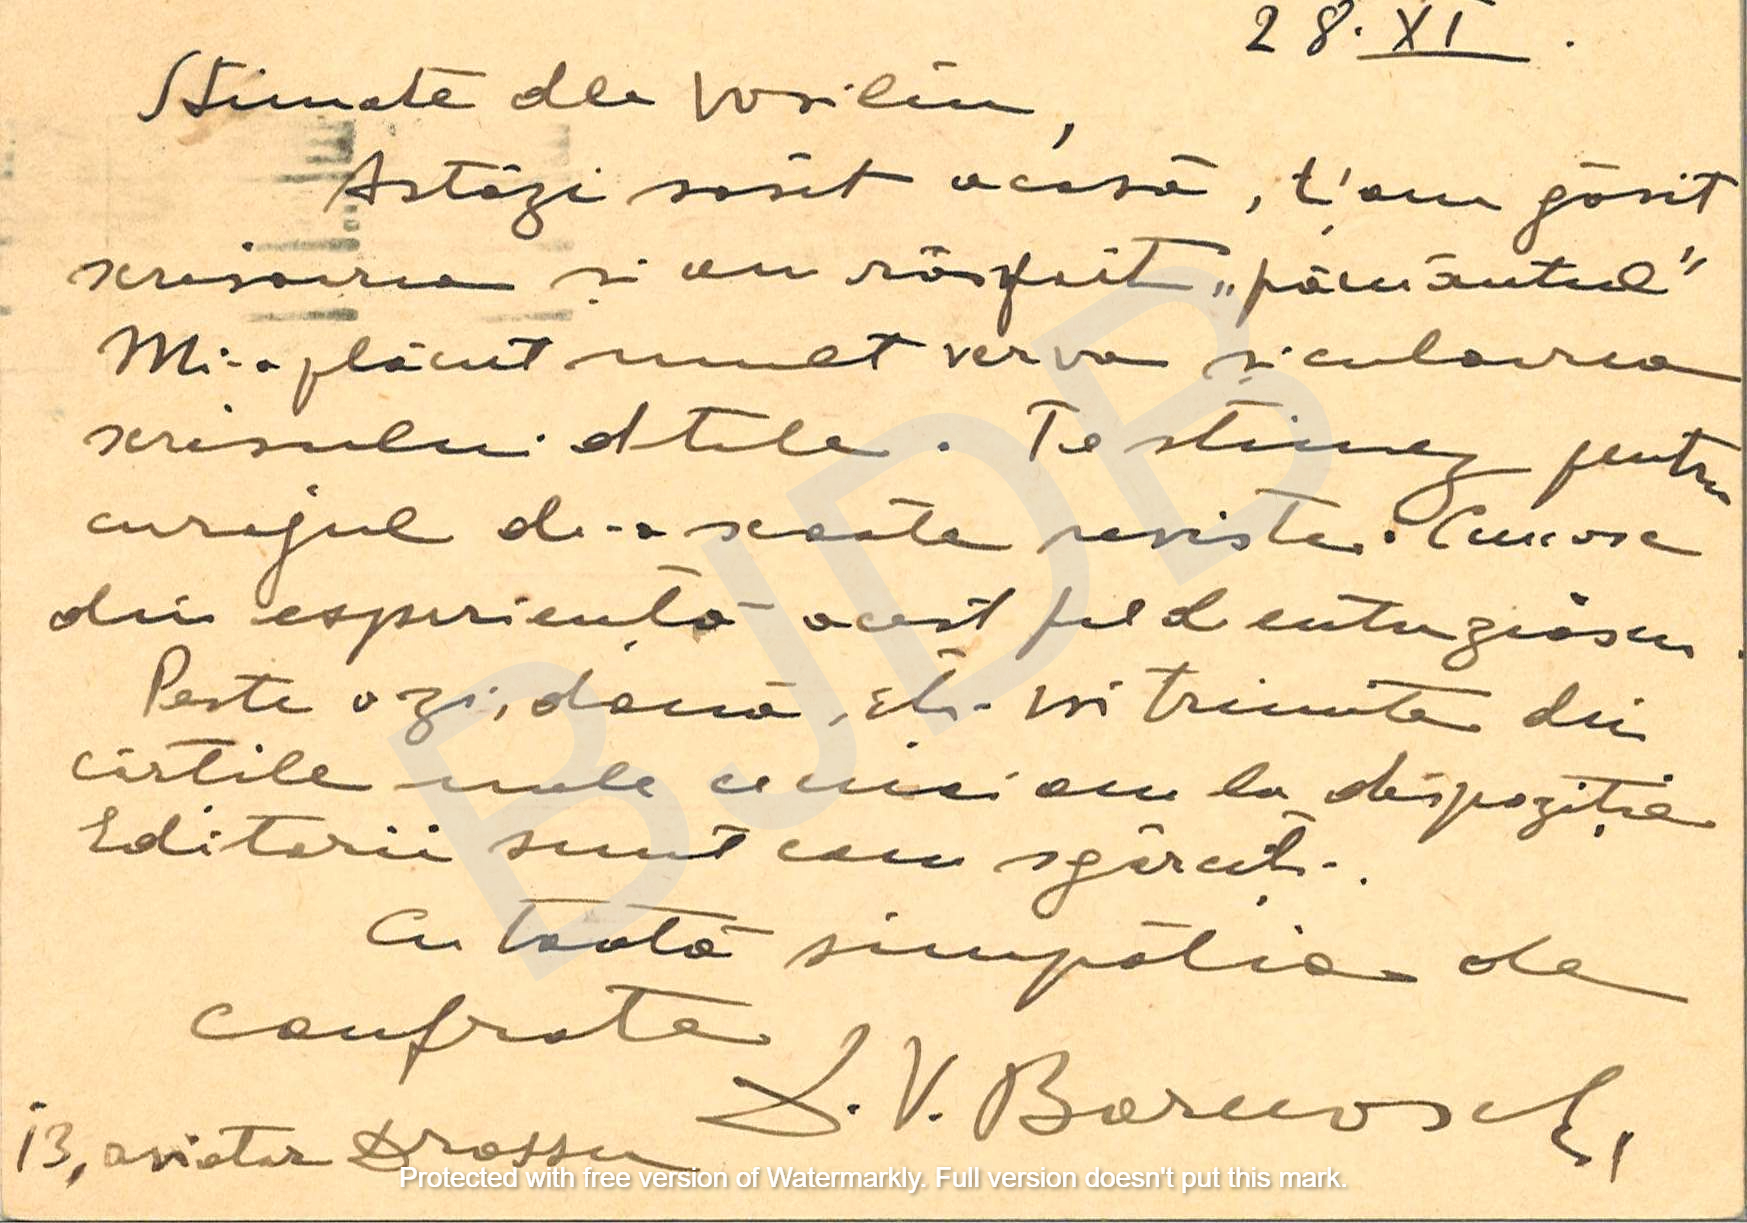 28.XI.
Stimate dle Vasiliu,
Astăzi sosit acasă, ț'am găsit
scrisoarea și am răsfoit „pământul"
Mi-a plăcut mult verva și culoarea
scrisului dtale. Te stimez pentru
curajul de-a scoate reviste. Cunosc
din esperiență acest fel d entuziasm.
Peste o zi, două, îți voi trimite din
cărțile mele ce mai am la dispoziție
Editorii sunt cam sgârciți.
Cu toată simpatia de
confrate
13, aviator Drossu
BJDB
Protected with free version of Watermarkly. Full version doesn't put this mark.